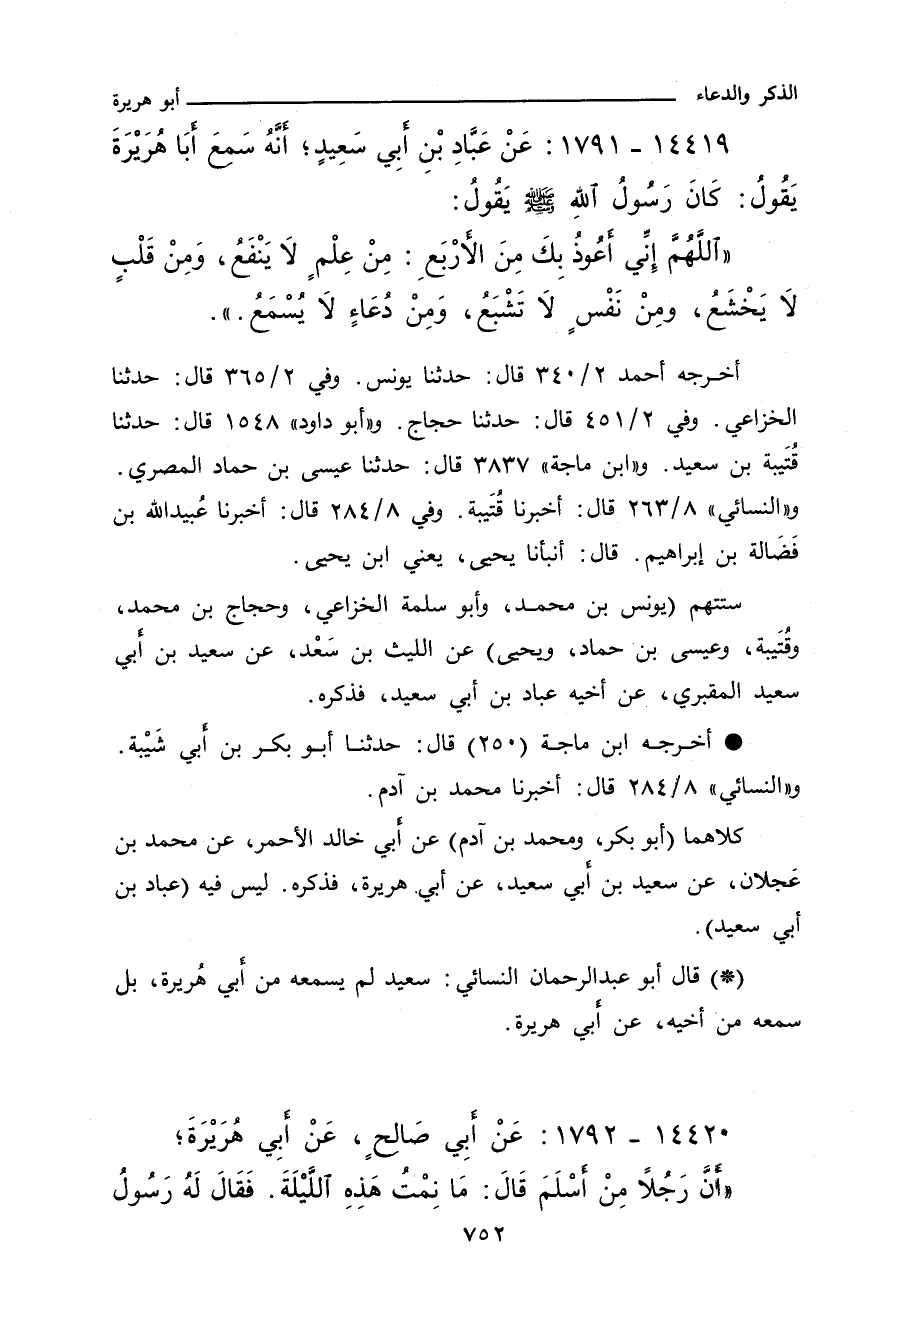 الذكر والدعاء ــــــــــــــــ أبو هريرة
١٤٤١٩ - ١٧٩١ : عَنْ عَبَّادِ بْنِ أَبِي سَعِيدٍ؛ أَنَّهُ سَمِعَ أَبَا هُرَيْرَةَ
يَقُولُ: كَانَ رَسُولُ ٱللهِ ﷺ يَقُولُ:
«ٱللَّهُمَّ إِنِّي أَعُوذُ بِكَ مِنَ الْأَرْبَعِ : مِنْ عِلْمٍ لَا يَنْفَعُ، وَمِنْ قَلْبٍ
لَا يَخْشَعُ، ومِنْ نَفْسٍ لَا تَشْبَعُ، وَمِنْ دُعَاءٍ لَا يُسْمَعُ.».
أخرجه أحمد ٣٤٠/٢ قال: حدثنا يونس. وفي ٣٦٥/٢ قال: حدثنا
الخزاعي. وفي ٤٥١/٢ قال: حدثنا حجاج. و«أبو داود» ١٥٤٨ قال: حدثنا
قُتَيبة بن سعيد. و«ابن ماجة» ٣٨٣٧ قال: حدثنا عيسى بن حماد المصري.
و«النسائي» ٢٦٣/٨ قال: أخبرنا قُتَيبة. وفي ٢٨٤/٨ قال: أخبرنا عُبيدالله بن
فَضَالة بن إبراهيم. قال: أنبأنا يحيى، يعني ابن يحيى.
ستتهم (يونس بن محمد، وأبو سلمة الخزاعي، وحجاج بن محمد،
وقُتَيبة، وعيسى بن حماد، ويحيى) عن الليث بن سَعْد، عن سعيد بن أَبي
سعيد المقبري، عن أخيه عباد بن أبي سعيد، فذكره.
● أخرجه ابن ماجة (٢٥٠) قال: حدثنا أبو بكر بن أَبي شَيْبة.
و«النسائي» ٢٨٤/٨ قال: أخبرنا محمد بن آدم.
كلاهما (أبو بكر، ومحمد بن آدم) عن أَبي خالد الأحمر، عن محمد بن
عَجلان، عن سعيد بن أَبي سعيد، عن أبي هريرة، فذكره. ليس فيه (عباد بن
أبي سعيد).
(*) قال أبو عبدالرحمان النسائي: سعيد لم يسمعه من أَبي هُريرة، بل
سمعه من أخيه، عن أَبي هريرة.
١٤٤٢٠ - ١٧٩٢ : عَنْ أَبِي صَالِحٍ، عَنْ أَبِي هُرَيْرَةَ؛
«أَنَّ رَجُلًا مِنْ أَسْلَمَ قَالَ: مَا نِمْتُ هَذِهِ ٱللَّيْلَةَ. فَقَالَ لَهُ رَسُولُ
٧٥٢